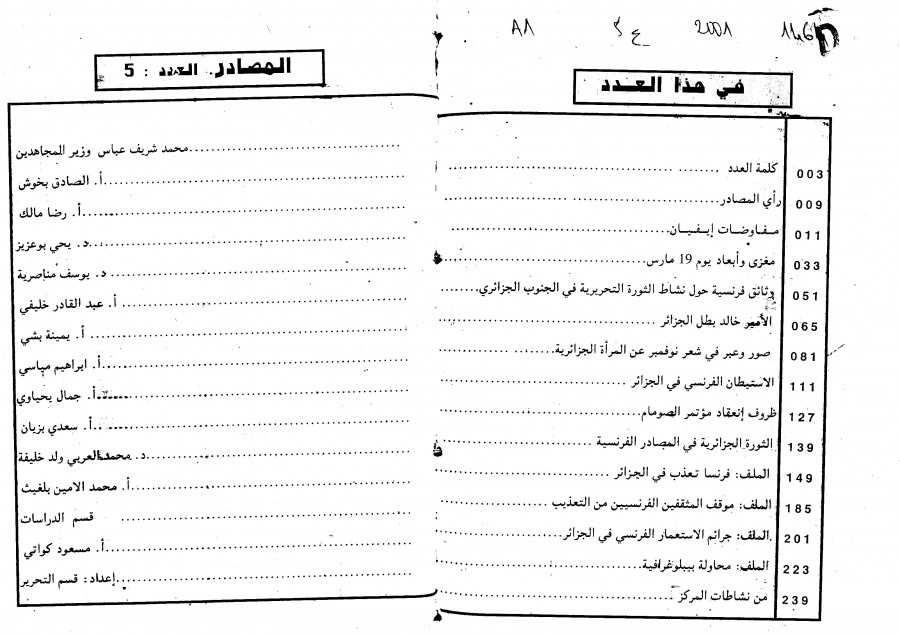 A1 ع 5 2001 146
في هذا العدد
المصادر. العدد : 5
003 كلمة العدد ........ محمد شريف عباس وزير المجاهدين
009 رأي المصادر........ أ. الصادق بخوش
011 مفاوضات إيفيان........ أ. رضا مالك
033 مغزى وأبعاد يوم 19 مارس........ د. يحي بوعزيز
051 وثائق فرنسية حول نشاط الثورة التحريرية في الجنوب الجزائري........ د. يوسف مناصرية
065 الأمير خالد بطل الجزائر ........ أ. عبد القادر خليفي
081 صور وعبر في شعر نوفمبر عن المرأة الجزائرية........ أ. يمينة بشي
111 الاستيطان الفرنسي في الجزائر ........ أ. ابراهيم مياسي
127 ظروف إنعقاد مؤتمر الصومام........ أ. جمال يحياوي
139 الثورة الجزائرية في المصادر الفرنسية ........ أ. سعدي بزيان
149 الملف: فرنسا تعذب في الجزائر ........ د. محمد العربي ولد خليفة
185 الملف: موقف المثقفين الفرنسيين من التعذيب ........ أ. محمد الامين بلغيث
201 الملف: جرائم الاستعمار الفرنسي في الجزائر........ قسم الدراسات
223 الملف: محاولة بيبلوغرافية........ أ. مسعود كواتي
239 من نشاطات المركز ........ إعداد: قسم التحرير